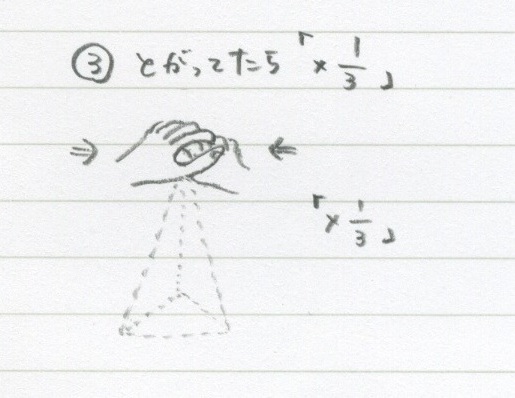 ③ とがってたら「×1/3」
⇒ ⇐
「×1/3」